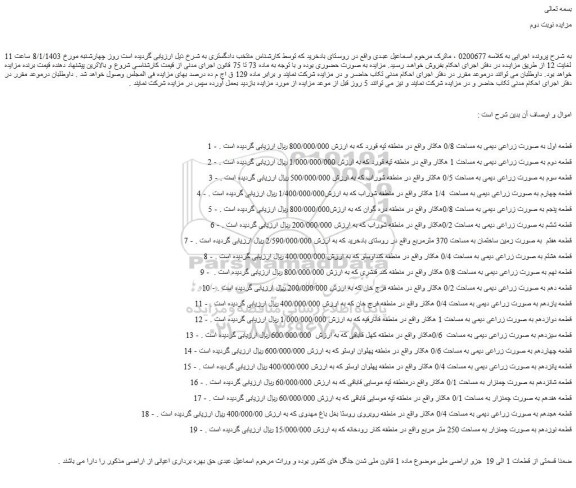 بسمه تعالی
مزایده نوبت دوم
به شرح پرونده اجرایی به کلاسه 0200677 ، ماترک مرحوم اسماعیل عبدی واقع در روستای بادخرید که توسط کارشناس منتخب دادگستری به شرح ذیل ارزیابی گردیده است روز چهارشنبه مورخ 8/1/1403 ساعت 11
لغایت 12 از طریق مزایده در دفتر اجرای احکام بفروش خواهد رسید. مزایده به صورت حضوری بوده و با توجه به ماده 73 تا 75 قانون اجرای مدنی از قیمت کارشناسی شروع و بالاترین پیشنهاد دهنده قیمت برنده مزایده
خواهد بود. داوطلبان می توانند درموعد مقرر در دفتر اجرای احکام مدنی تکاب حاضر و در مزایده شرکت نمایند و برابر ماده 129 ق اج م ده درصد بهای مزایده فی المجلس وصول خواهد شد . داوطلبان درموعد مقرر در
دفتر اجرای احکام مدنی تکاب حاضر و در مزایده شرکت نمایند و نیز می توانند 5 روز قبل از موعد مزایده از مورد مزایده بازدید بعمل آورده سپس در مزایده شرکت نمایند .
اموال و اوصاف آن بدین شرح است :
قطعه اول به صورت زراعی دیمی به مساحت 0/8 هکتار واقع در منطقه تپه قورد که به ارزش 800/000/000 ریال ارزیابی گردیده است . - 1
قطعه دوم به صورت زراعی دیمی به مساحت 1 هکتار واقع در منطقه تپه قورد که به ارزش 1/000/000/000 ریال ارزیابی گردیده است . - 2
قطعه سوم به صورت زراعی دیمی به مساحت 0/5 هکتار واقع در منطقه شوراب که به ارزش 500/000/000 ریال ارزیابی گردیده است . - 3
قطعه چهارم به صورت زراعی دیمی به مساحت 1/4 هکتار واقع در منطقه شوراب که به ارزش1/400/000/000 ریال ارزیابی گردیده است . - 4
قطعه پنجم به صورت زراعی دیمی به مساحت 0/8هکتار واقع در منطقه دره گوان که به ارزش800/000/000 ریال ارزیابی گردیده است . - 5
قطعه ششم به صورت زراعی دیمی به مساحت 0/2هکتار واقع در منطقه شوراب که به ارزش 200/000/000 ریال ارزیابی گردیده است . - 6
قطعه هفتم به صورت زمین ساختمان به مساحت 370 مترمربع واقع در روستای بادخرید که به ارزش 2/590/000/000 ریال ارزیابی گردیده است . - 7
قطعه هشتم به صورت زراعی دیمی به مساحت 0/4 هکتار واقع در منطقه کنداوسلو که به ارزش 400/000/000 ریال ارزیابی گردیده است . - 8
قطعه نهم به صورت زراعی دیمی به مساحت 0/8 هکتار واقع در منطقه کند قشری که به ارزش 800/000/000 ریال ارزیابی گردیده است . - 9
قطعه دهم به صورت زراعی دیمی به مساحت 0/2 هکتار واقع در منطقه فرج خان که به ارزش 200/000/000 ریال ارزیابی گردیده است . - 10
قطعه یازدهم به صورت زراعی دیمی به مساحت 0/4 هکتار واقع در منطقه فرج خان که به ارزش 400/000/000 ریال ارزیابی گردیده است . - 11
قطعه دوازدهم به صورت زراعی دیمی به مساحت 1 هکتار واقع در منطقه که به ارزش 1/000/000/000 ریال ارزیابی گردیده است . - 12
قطعه سیزدهم به صورت زراعی دیمی به مساحت 0/6هکتار واقع در منطقه کهل قاباقی که به ارزش 600/000/000 ریال ارزیابی گردیده است . - 13
قطعه چهاردهم به صورت زراعی دیمی به مساحت 0/6 هکتار واقع در منطقه پهلوان اوسلو که به ارزش 600/000/000 ریال ارزیابی گردیده است - 14
قطعه پانزدهم به صورت زراعی دیمی به مساحت 0/4 هکتار واقع در منطقه پهلوان اوسلو که به ارزش 400/000/000 ریال ارزیابی گردیده است . - 15
قطعه شانزدهم به صورت چمنزار به مساحت 0/1 هکتار واقع درمنطقه تپه موسایی قاباقی که به ارزش 60/000/000 ریال ارزیابی گردیده است . - 16
قطعه هفدهم به صورت چمنزار به مساحت 0/1 هکتار واقع در منطقه تپه موسایی قاباقی که به ارزش 60/000/000 ریال ارزیابی گردیده است . - 17
قطعه هجدهم به صورت زراعی دیمی به مساحت 0/4 هکتار واقع در منطقه روبروی روستا بغل باغ مهدوی که به ارزش 400/000/00 ریال ارزیابی گردیده است . - 18
قطعه نوزدهم به صورت چمنزار به مساحت 250 متر مربع واقع در منطقه کنار رودخانه که به ارزش 15/000/000 ریال ارزیابی گردیده است . - 19
ضمنا قسمتی از قطعات 1 الی 19 جزو اراضی ملی موضوع ماده 1 قانون ملی شدن جنگل های کشور بوده و وراث مرحوم اسماعیل عبدی حق بهره برداری اعیانی از اراضی مذکور را دارا می باشند .
ParsNamadData
پایگاه اطلاع رسانی مناقصه و مزایده
۰۲۱-۸۸۳۴۹۶۷۰-۵